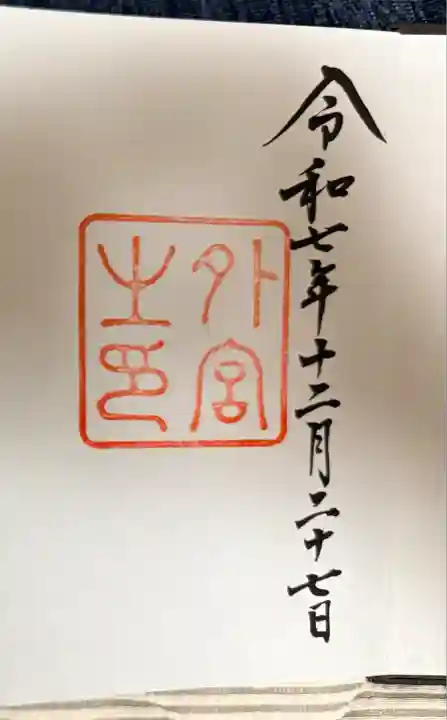 令和七年十二月二十七日
外宮之印